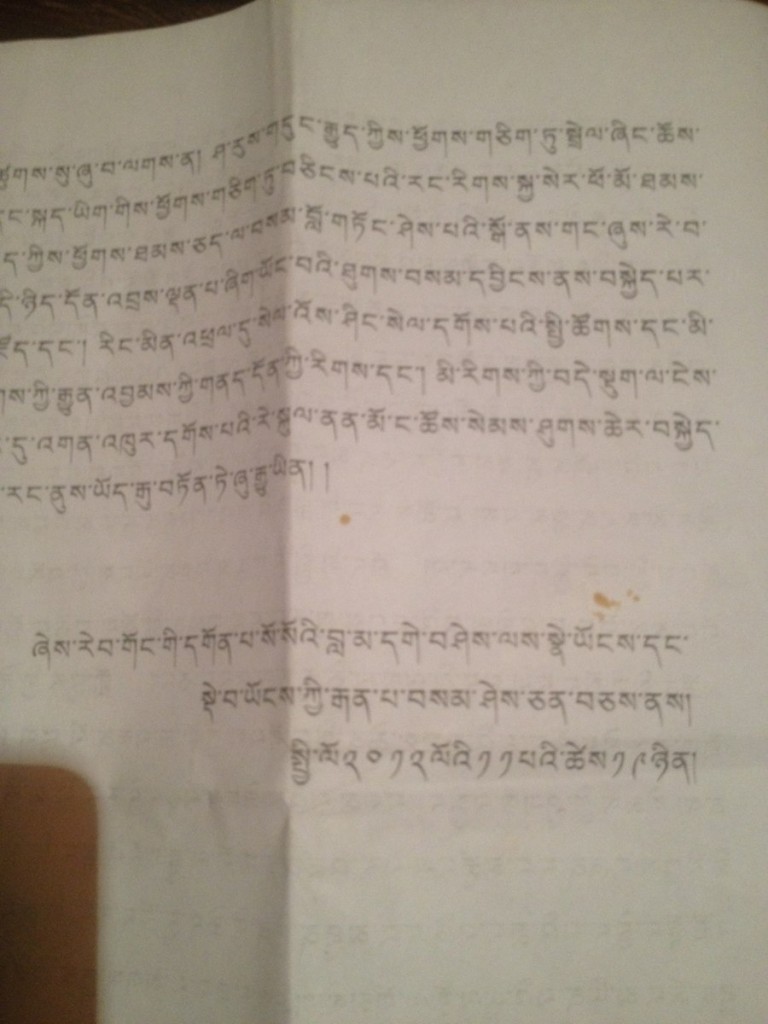 ཚོགས་སུ་ཞུ་བ་ལགས་ན། ཤ་རུས་གདུང་རྒྱུད་ཀྱིས་ཕྱོགས་གཅིག་ཏུ་སྦྲེལ་ཞིང་ཆོས་
དང་སྐད་ཡིག་གིས་ཕྱོགས་གཅིག་ཏུ་བཅིངས་པའི་རང་རིགས་སྐྱ་སེར་ཕོ་མོ་ཐམས་
ད་ཀྱིས་ཕྱོགས་ཐམས་ཅད་ལ་བསམ་བློ་གཏོང་ཤེས་པའི་སྒོ་ནས་གང་ཞུས་རེ་བ་
དེ་ཉིད་དོན་འབྲས་ལྡན་པ་ཞིག་ཡོང་བའི་ཐུགས་བསམ་དབྱིངས་ནས་བསྐྱེད་པར་
མཛོད་དང་། རིང་མིན་འཕྲལ་དུ་སེལ་འོས་ཤིང་སེལ་དགོས་པའི་སྤྱི་ཚོགས་དང་མི་
གས་ཀྱི་རྒྱུན་འབྱམས་ཀྱི་གནད་དོན་ཀྱི་རིགས་དང་། མི་རིགས་ཀྱི་བདེ་སྡུག་ལ་ངེས་
དུ་འགན་འཁུར་དགོས་པའི་རེ་སྐུལ་ནན་མོ་ང་ཚོས་སེམས་ཤུགས་ཆེར་བསྐྱེད་
རང་ནུས་ཡོད་རྒུ་བཏོན་ཏེ་ཞུ་རྒྱུ་ཡིན། །
ཞེས་རེབ་གོང་གི་དགོན་པ་སོ་སོའི་བླ་མ་དགེ་བཤེས་ལས་སྣེ་ཡོངས་དང་
སྡེ་བ་ཡོངས་ཀྱི་རྒན་པ་བསམ་ཤེས་ཅན་བཅས་ནས།
སྤྱི་ལོ༢༠༡༢ལོའི་༡༡པའི་ཚེས༡༩ཉིན།